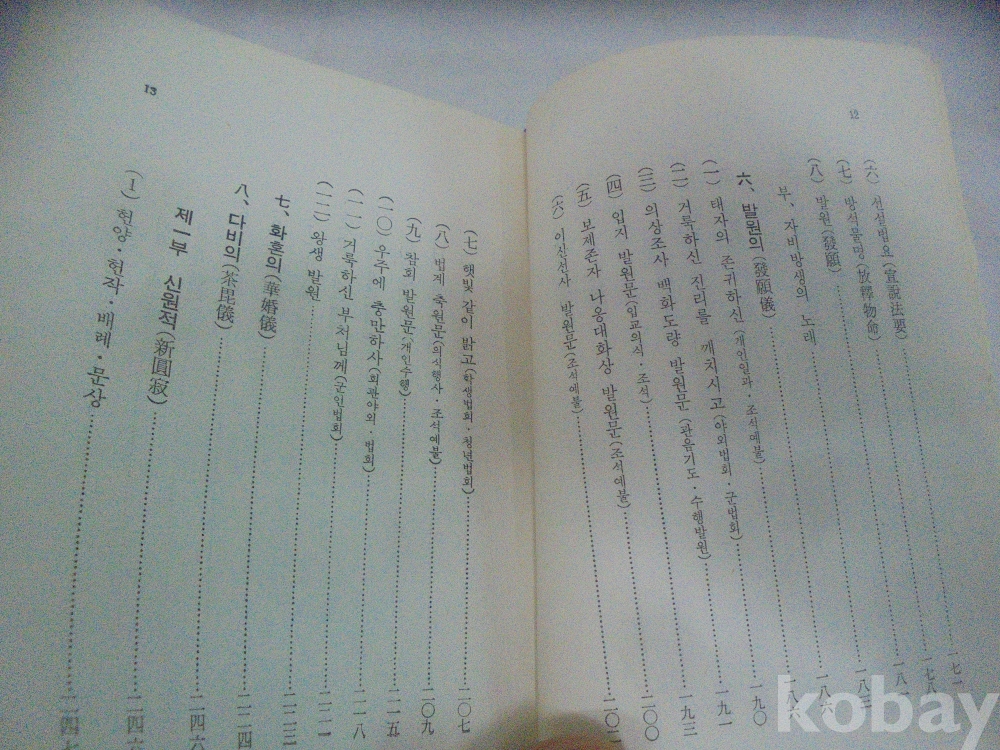 12
(六) 선설법요(宣說法要)
(七) 방석물명(放釋物命)
(八) 발원(發願) 一八三
부、자비방생의 노래 一八六
六、발원의(發願儀)
(一) 태자의 존귀하신(개인일과·조석예불) 一九〇
(二) 거룩하신 진리를 깨치시고(야외법회·군법회) 一九一
(三) 의상조사 백화도량 발원문(관음기도·수행발원) 一九三
(四) 입지 발원문(입교의식·조석) 二〇〇
(五) 보제존자 나옹대화상 발원문(조석예불) 二〇二
(六) 이산선사 발원문(조석예불)
13
(七) 햇빛 같이 밝고(학생법회·청년법회) 二〇七
(八) 법계 축원문(의식행사·조석예불) 二〇九
(九) 참회 발원문(개인수행) 二一五
(一〇) 우주에 충만하사(회관야외·법회) 二一八
(一一) 거룩하신 부처님께(군인법회) 二二一
(一二) 왕생 발원 二二二
七、화혼의(華婚儀) 二二四
八、다비의(茶毘儀) 二四六
제一부 신원적(新圓寂) 二四六
(1) 헌양·헌작·배례·문상 二四七
kobay